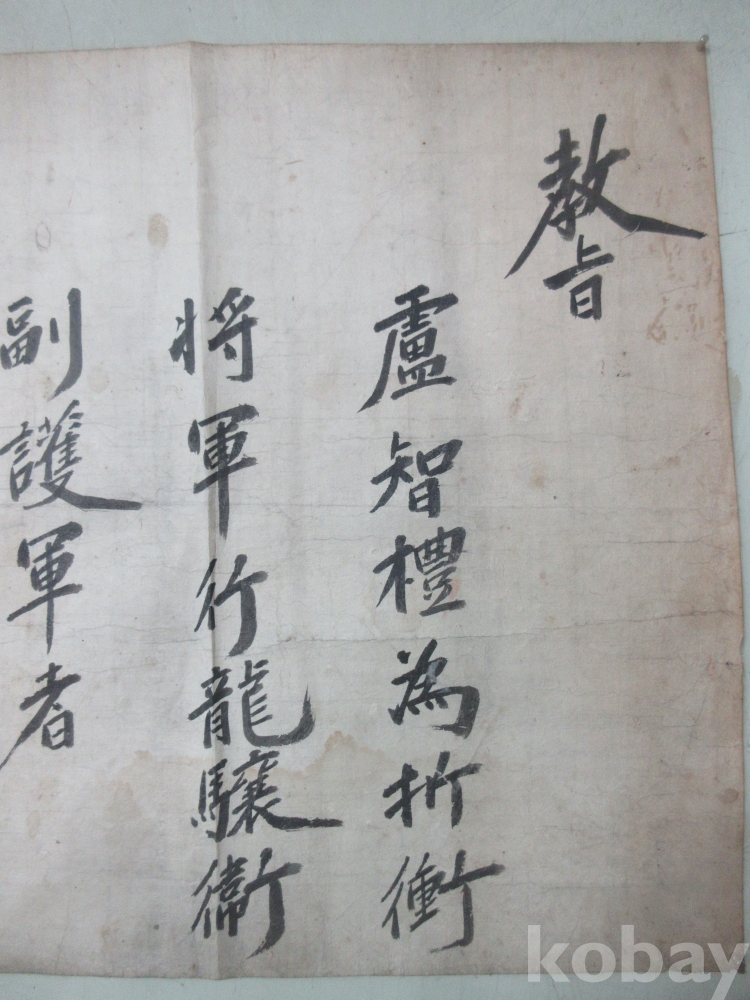 教旨
盧智禮為折衝
將軍行龍驤衛
副護軍者
kobay